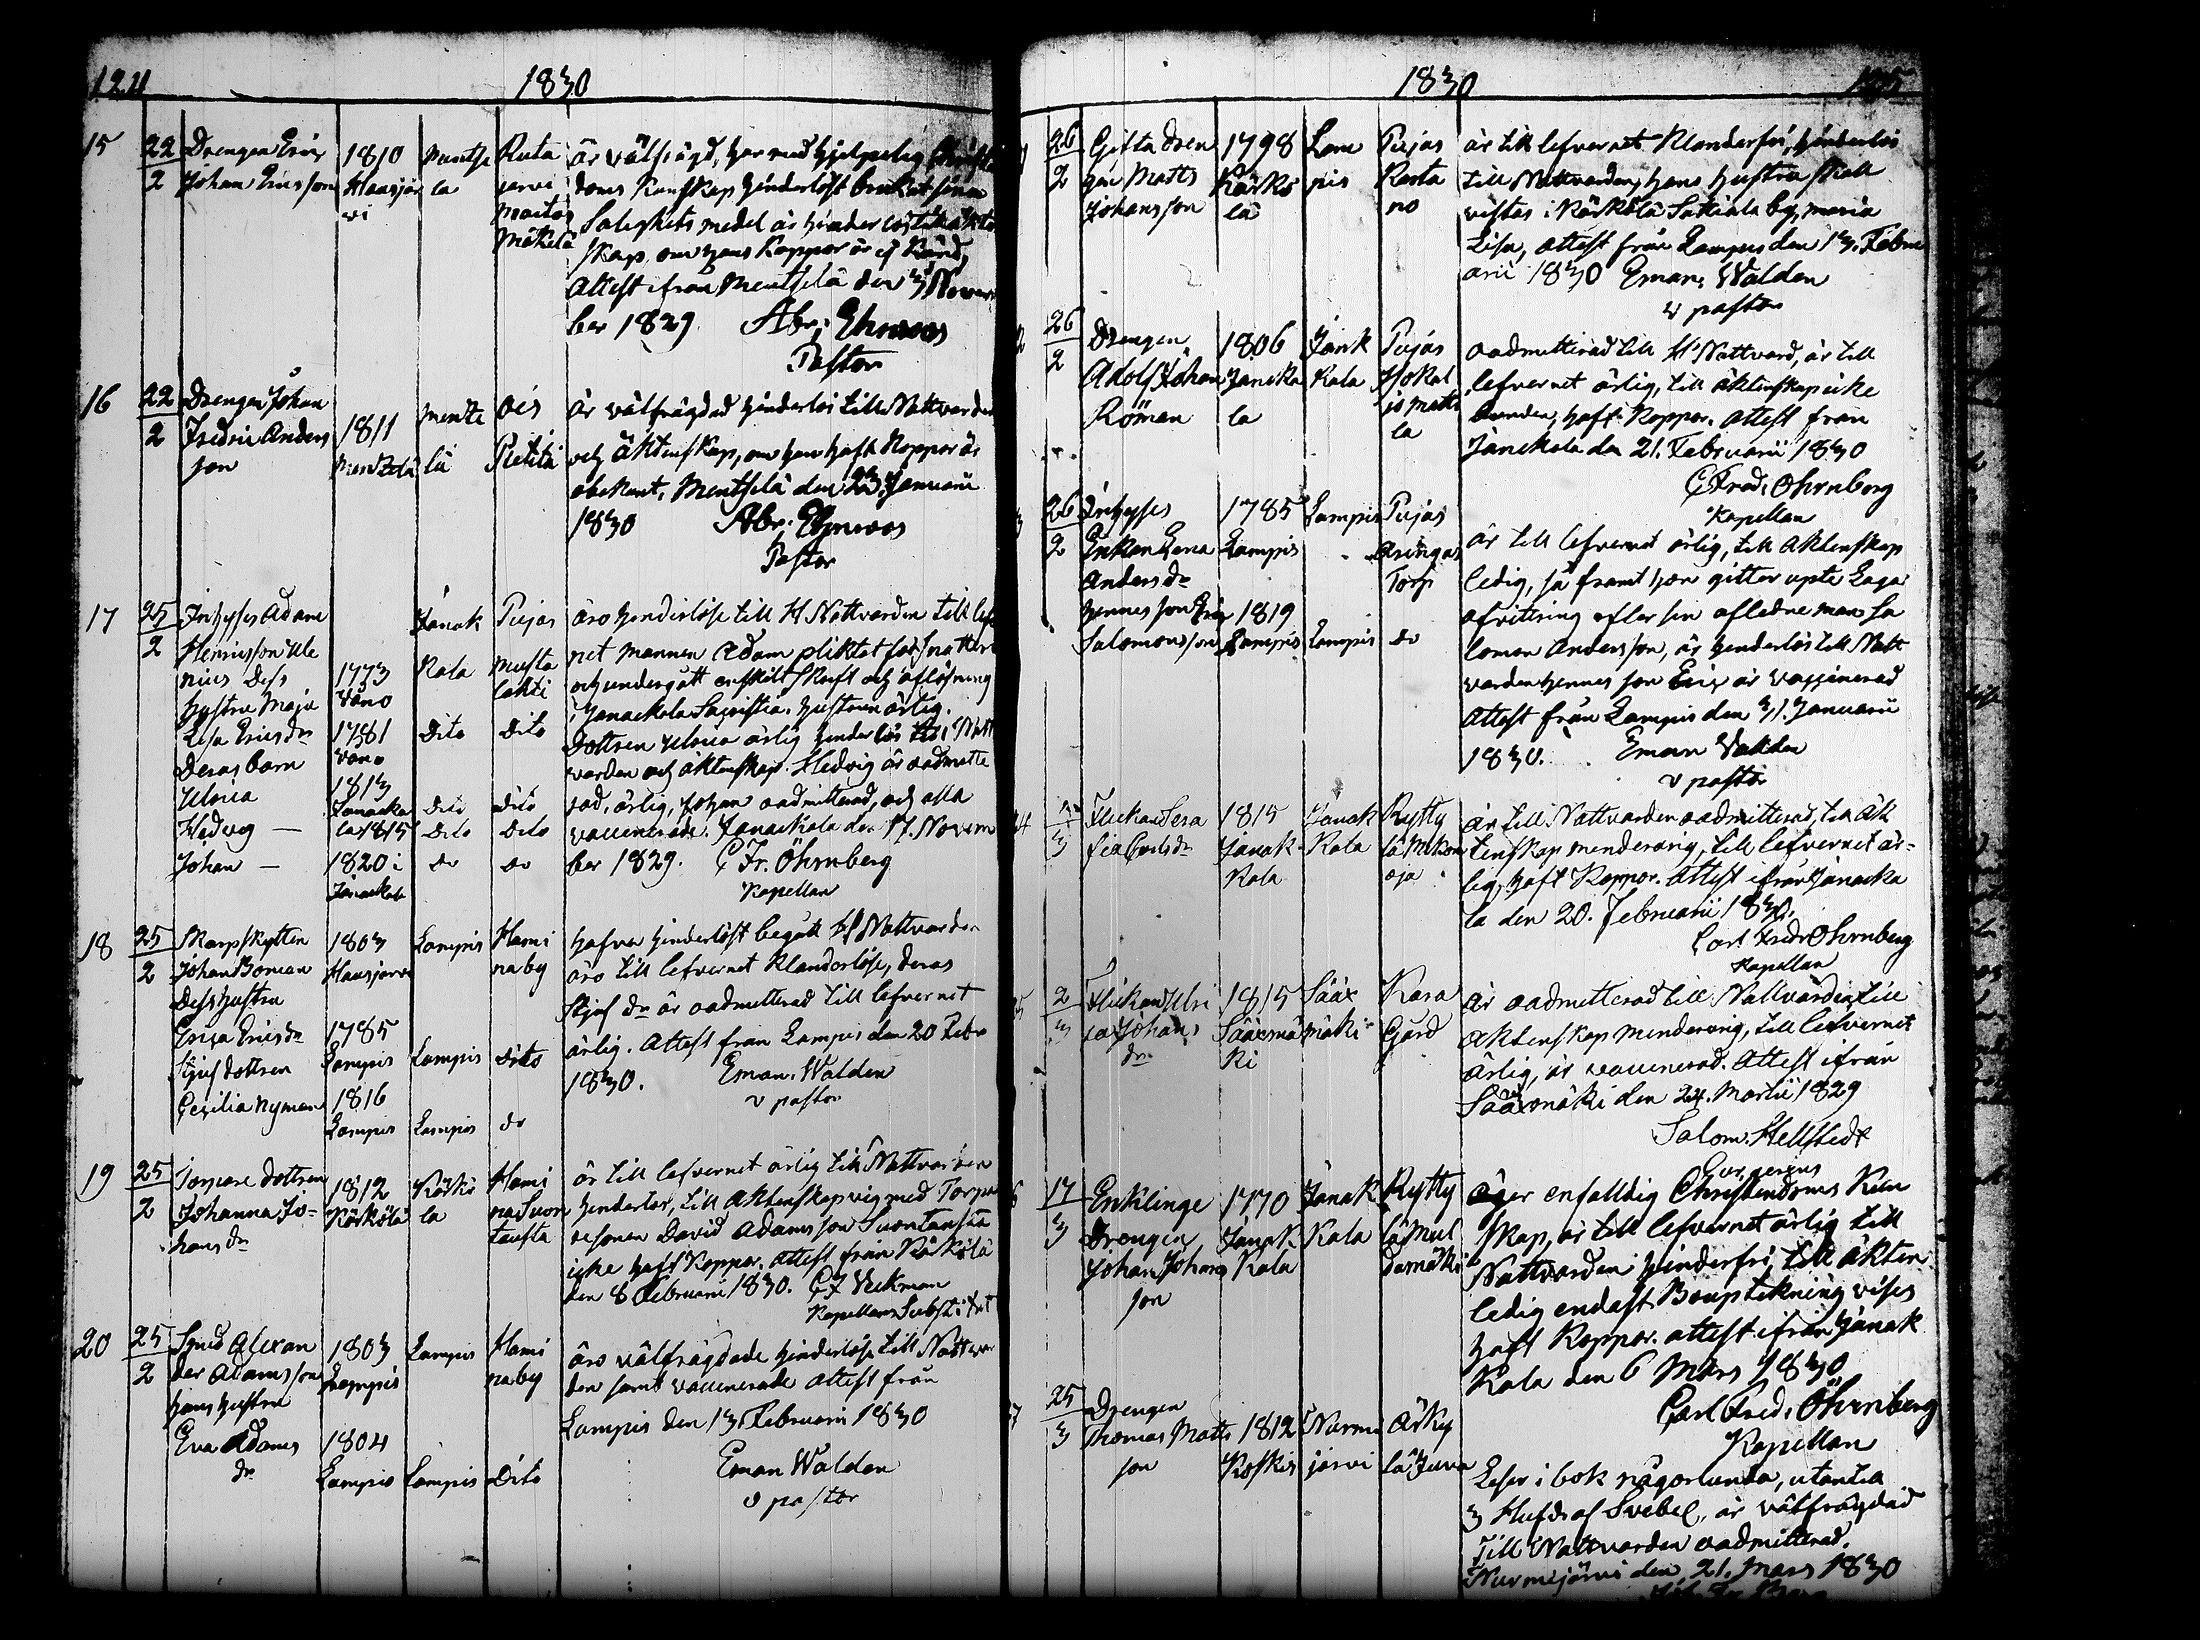 124
1830
15
22
2
Drengen Eric
Johan Ericsson
1810
Hausjär
vi
Mentze
la
Ruta
jervi
Mattas
Mäkelä
är välfrägd, har nödhjelpelig Christen
doms Kunskap hinderlöst brukat sina
Salighets medel är hinderlös till äkten
skap, om hans Koppor är ej känd,
Attest ifrån Mentselä den 3 Novem
ber 1829. Abr:
Pastor
16
22
2
Drengen Johan
Fredric Anders
son
1811
Mentzelä
Mente
lä
Ois
Pietilä
är välfrägdad hinderlös till Nattvarden
och äktenskap, om han haft Koppor är
obekant, Mentselä den 23 Januarii
1830 Abr:
Pastor
17
25
2
Inhyses Adam
Henricsson Ule
nius Dess
hustru Maja
Lisa Ericsdr
Deras barn
Ulrica
Hedvig —
Johan —
1773
Vånå
1781
Vånå
1813
Janacka
la 1815
1820 i
Janackala
Janak
Kala
Dito
Dito
Dito
do
Pujas
Musta
lahti
Dito
Dito
Dito
do
äro hinderlöse till H Nattvarden till lefver
net mannen Adam pliktat för Snatteri
och undergått enskilt Skrift och aflösning
i Janackala Sacristia. hustrun ärlig.
Dottren Ulrica ärlig hinderlös till Natt
varden och äktenskap. Hedvig är oadmitte
rad, ärlig, Johan oadmitterad, och alla
vaccinerade. Janackala den 17. Novem
ber 1829. C Fr. Öhrnberg
Kapellan
18
25
2
Skarpskytten
Johan Boman
Dess hustru
Erica Ericsdr
Stjufdottren
Cecilia Nyman
1803
Hausjärvi
1785
Lampis
1816
Lampis
Lampis
Lampis
Lampis
Hami
naby
Dito
do
hafva hinderlöst begått H Nattvarden
äro till lefvernet Klanderlöse, deras
Stjuf dr är oadmitterad till lefvernet
ärlig. Attest från Lampis den 20 Febr
1830. Eman. Walden
v pastor
19
25
2
Torpare dottren
Johanna Jo-
hansdr
1812
Kärkölä
Kärkö
la
Hami
na Suon
tausta
är till lefvernet ärlig till Nattvarden
hinderlös, till äktenskap vig med Torpa
resonen David Adamsson Suontausta
icke haft Koppor. Attest från Kärkölä
den 8 Februarii 1830.
Kapellans Substitut
20
25
2
Smed Alexan
der Adamsson
hans hustru
Eva Adams
dr
1803
Lampis
1804
Lampis
Lampis
Lampis
Hami
naby
Dito
äro välfrägdade hinderlöse till Nattvar
den samt vaccinerade Attest från
Lampis den 13 Februarii 1830
Eman Walden
v pastor
1830
125
26
2
Gifta Dren
gen Matts
Johansson
1798
Kärkö
lä
Lam
pis
Pujas
Rasta
no
är till lefvernet Klanderfri, hinderlös
till Nattvarden, hans hustru skall
vistas i Kärkölä by, Maria
Lisa, attest från Lampis den 13. Febru
arii 1830 Eman. Walden
v pastor
2
26
2
Drengen
Adolf Johan
Röman
1806
Jancka
la
Jank
Kala
Pujas
Hokal
la
oadmitterad till H Nattvard, är till
lefvernet ärlig, till äktenskap icke
bunden, haft Koppor. Attest från
Janckala den 21. Februarii 1830
C Fred: Öhrnberg
Kapellan
3
26
2
Inhyses
Enkan Lena
Andersdr
hennes son Eric
Salomonsson
1785
Lampis
1819
Lampis
Lampis
Lampis
Pujas
Torp
do
är till lefvernet ärlig, till äktenskap
ledig, så framt hon gitter upte Laga
afvittring efter sin aflidne man Sa
lomon Andersson, är hinderlös till Natt
varden hennes son Eric är vaccinerad
Attest från Lampis den 31. Januarii
1830. Eman Walden
v pastor
24
3
Flickan Lesa
fia Carlsdr
1815
Janak
Kala
Janak
Kala
Rytty
lä
oja
är till Nattvarden oadmitterad, till äk
tenskap minderårig, till lefvernet är-
lig, haft Koppor. Attest ifrån Janacka
la den 20. Februarii 1830.
Carl Fredr Öhrnberg
Kapellan
2
3
Flickan Ulri
ca Johans
dr
1815
Sääxmä
ki
Sääx
mäki
Kara
Gård
är oadmitterad till Nattvarden, till
äktenskap minderårig, till lefvernet
ärlig, är vaccinerad. Attest ifrån
Sääxmäki den 24. Martii 1829
Salom: Hellstedt
17
3
Enklinge
Drengen
Johan Johans
son
1770
Janak
Kala
Janak
Kala
Rytty
lä Mul
damäki
äger enfaldig Christendoms Kun
skap, är till lefvernet ärlig till
Nattvarden hinderfri, till äkten
ledig endast Bouptekning vises
haft Koppor. attest ifrån Janak
Kala den 6 Mars 1830
Carl Fred: Öhrnberg
Kapellan
25
3
Drengen
Thomas Matts
son
1812
Koskis
Nurmi
järvi
Ärky
lä Juva
Läser i bok någorlunda, utantil
3 Hufds af Svebel, är välfrägdad
Till Nattvarden oadmitterad.
Nurmijärvi den 21. Mars 1830